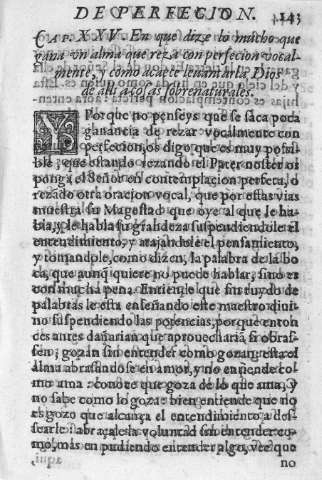 DE PERFECION. 143
CAP. XXV. En que dize lo mucho que
gana vn alma que reza con perfecion vocal-
mente, y como acaece leuantarla Dios
de alli a cosas sobrenaturales.
Y Porque no penseys que se saca poca
ganancia de rezar vocalmente con
perfecion, os digo que es muy possi-
ble, que estando rezando el Pater noster os
ponga el Señor en contemplacion perfeta, o
rezãdo otra oracion vocal, que por estas vias
muestra su Magestad que oye al que le ha-
bla, y le habla su grãdeza suspendiendole el
entendimiento, y atajandole el pensamiento,
y tomandole, como dizen, la palabra de la bo
ca, que aunq̃ quiere no puede hablar, sino es
con mucha pena. Entiende que sin ruydo de
palabras le esta enseñando este maestro diui-
no suspendiendo las potencias, porque enton
ces antes dañarian que aprouecharia si obras-
sen; gozan sin entender como gozan: esta el
alma abrasandose en amor, y no entiende co-
mo ama: conoce que goza de lo que ama, y
no sabe como lo goza: bien entiende que no
es gozo que alcança el entendimiento a des-
searle: abraçale la voluntad sin entender co-
mo, mas en pudiendo entender algo, vee que
no